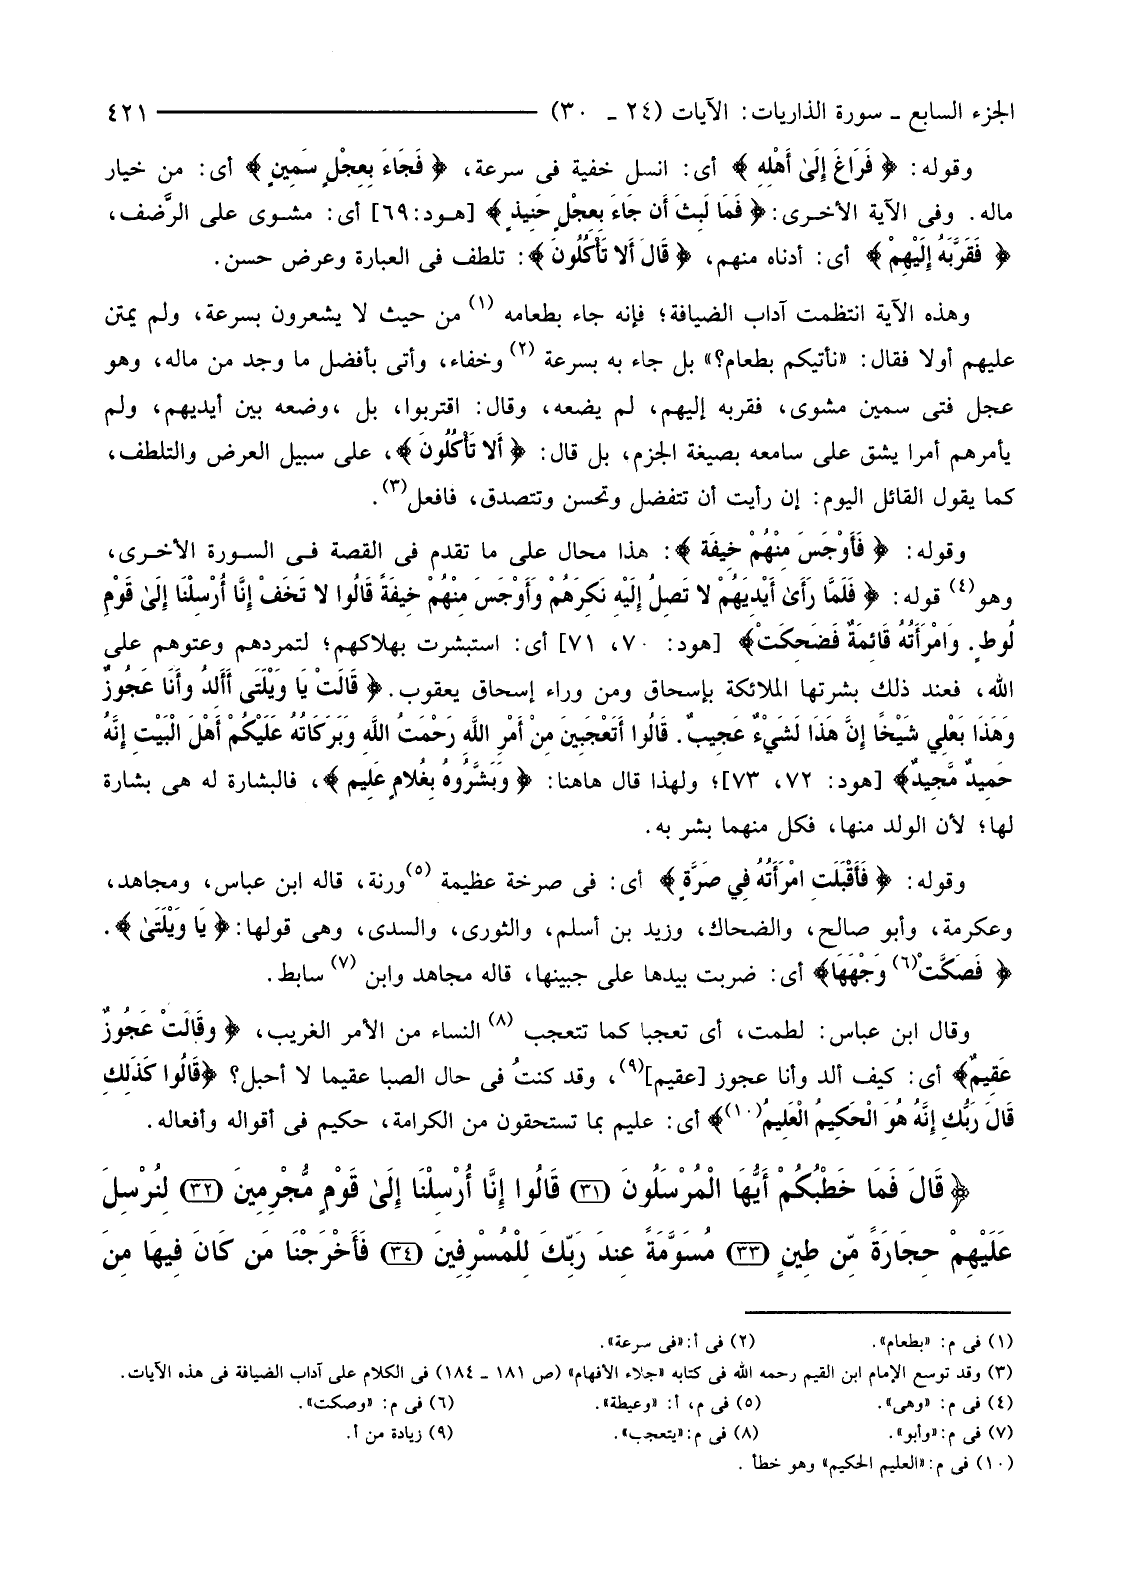 الجزء السابع ـ سورة الذاريات: الآيات (٢٤ ـ ٣٠) ٤٢١
وقوله: ﴿ فَرَاغَ إِلَىٰ أَهْلِهِ ﴾ أى: انسل خفية فى سرعة، ﴿ فَجَاءَ بِعِجْلٍ سَمِينٍ ﴾ أى: من خيار
ماله. وفى الآية الأخـرى: ﴿ فَمَا لَبِثَ أَن جَاءَ بِعِجْلٍ حَنِيذٍ ﴾ [هـود:٦٩] أى: مشوى على الرَّضف،
﴿ فَقَرَّبَهُ إِلَيْهِمْ ﴾ أى: أدناه منهم، ﴿ قَالَ أَلا تَأْكُلُونَ ﴾: تلطف فى العبارة وعرض حسن.
وهذه الآية انتظمت آداب الضيافة؛ فإنه جاء بطعامه (١) من حيث لا يشعرون بسرعة، ولم يمتن
عليهم أولا فقال: «نأتيكم بطعام؟» بل جاء به بسرعة (٢) وخفاء، وأتى بأفضل ما وجد من ماله، وهو
عجل فتى سمين مشوى، فقربه إليهم، لم يضعه، وقال: اقتربوا، بل ،وضعه بين أيديهم، ولم
يأمرهم أمرا يشق على سامعه بصيغة الجزم، بل قال: ﴿ أَلا تَأْكُلُونَ ﴾، على سبيل العرض والتلطف،
كما يقول القائل اليوم: إن رأيت أن تتفضل وتحسن وتتصدق، فافعل(٣).
وقوله: ﴿ فَأَوْجَسَ مِنْهُمْ خِيفَة ﴾: هذا محال على ما تقدم فى القصة فـى السـورة الأخـرى،
وهو(٤) قوله: ﴿ فَلَمَّا رَأَىٰ أَيْدِيَهُمْ لا تَصِلُ إِلَيْهِ نَكِرَهُمْ وَأَوْجَسَ مِنْهُمْ خِيفَةً قَالُوا لا تَخَفْ إِنَّا أُرْسِلْنَا إِلَىٰ قَوْمِ
لُوطٍ. وَامْرَأَتُهُ قَائِمَةٌ فَضَحِكَتْ﴾ [هود: ٧٠، ٧١] أى: استبشرت بهلاكهم؛ لتمردهم وعتوهم على
الله، فعند ذلك بشرتها الملائكة بإسحاق ومن وراء إسحاق يعقوب. ﴿ قَالَتْ يَا وَيْلَتَى أَأَلِدُ وَأَنَا عَجُوزٌ
وَهَذَا بَعْلِي شَيْخًا إِنَّ هَذَا لَشَيْءٌ عَجِيبٌ. قَالُوا أَتَعْجَبِينَ مِنْ أَمْرِ اللَّهِ رَحْمَتُ اللَّهِ وَبَرَكَاتُهُ عَلَيْكُمْ أَهْلَ الْبَيْتِ إِنَّهُ
حَمِيدٌ مَّجِيدٌ﴾ [هود: ٧٢، ٧٣]؛ ولهذا قال هاهنا: ﴿ وَبَشَّرُوهُ بِغُلامٍ عَلِيمٍ ﴾، فالبشارة له هى بشارة
لها؛ لأن الولد منها، فكل منهما بشر به.
وقوله: ﴿ فَأَقْبَلَتِ امْرَأَتُهُ فِي صَرَّةٍ ﴾ أى: فى صرخة عظيمة (٥)ورنة، قاله ابن عباس، ومجاهد،
وعكرمة، وأبو صالح، والضحاك، وزيد بن أسلم، والثورى، والسدى، وهى قولها: ﴿ يَا وَيْلَتَىٰ ﴾.
﴿ فَصَكَّتْ(٦) وَجْهَهَا﴾ أى: ضربت بيدها على جبينها، قاله مجاهد وابن (٧) سابط.
وقال ابن عباس: لطمت، أى تعجبا كما تتعجب (٨) النساء من الأمر الغريب، ﴿ وَقَالَتْ عَجُوزٌ
عَقِيمٌ﴾ أى: كيف ألد وأنا عجوز [عقيم](٩)، وقد كنتُ فى حال الصبا عقيما لا أحبل؟ ﴿قَالُوا كَذَلِكِ
قَالَ رَبُّكِ إِنَّهُ هُوَ الْحَكِيمُ الْعَلِيمُ(١٠)﴾ أى: عليم بما تستحقون من الكرامة، حكيم فى أقواله وأفعاله.
﴿ قَالَ فَمَا خَطْبُكُمْ أَيُّهَا الْمُرْسَلُونَ (٣١) قَالُوا إِنَّا أُرْسِلْنَا إِلَىٰ قَوْمٍ مُّجْرِمِينَ (٣٢) لِنُرْسِلَ
عَلَيْهِمْ حِجَارَةً مِّن طِينٍ (٣٣) مُسَوَّمَةً عِندَ رَبِّكَ لِلْمُسْرِفِينَ (٣٤) فَأَخْرَجْنَا مَن كَانَ فِيهَا مِنَ
(١) فى م: «بطعام». (٢) فى أ: «فى سرعة».
(٣) وقد توسع الإمام ابن القيم رحمه الله فى كتابه «جلاء الأفهام» (ص ١٨١ ـ ١٨٤) فى الكلام على آداب الضيافة فى هذه الآيات.
(٤) فى م: «وهى». (٥) فى م، أ: «وعيطة». (٦) فى م: «وصكت».
(٧) فى م: «وأبو». (٨) فى م: «يتعجب». (٩) زيادة من أ.
(١٠) فى م: «العليم الحكيم» وهو خطأ .